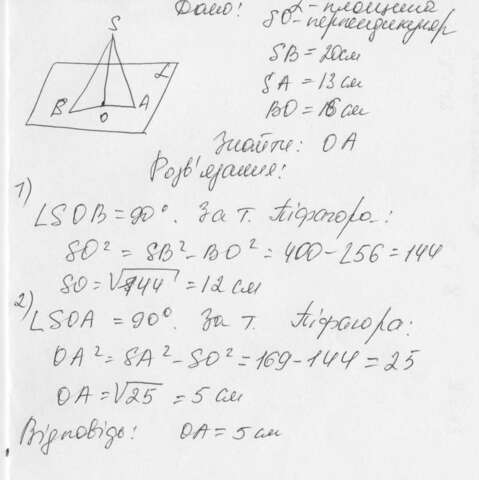 Дано: α - площина
SO - перпендикуляр
SB = 20см
SA = 13 см
BO = 16 см
Знайти: OA
Розв'язання:
1)
∠SOB = 90°. За т. Піфагора:
SO² = SB² - BO² = 400 - 256 = 144
SO = √144 = 12 см
2)
∠SOA = 90°. За т. Піфагора:
OA² = SA² - SO² = 169 - 144 = 25
OA = √25 = 5 см
Відповідь: OA = 5 см
S
α
B
O
A